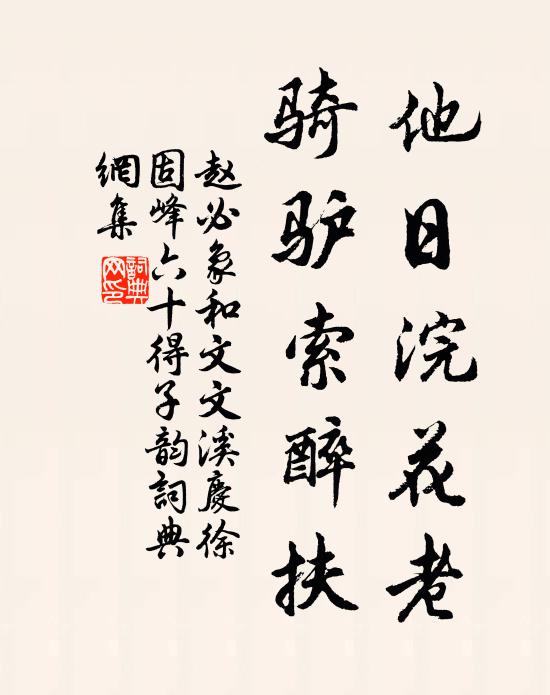 他日浣花老
骑驴索醉扶
赵必象和文文溪慶徐
固峰六十得子韵詞典
網集
詞典
网印